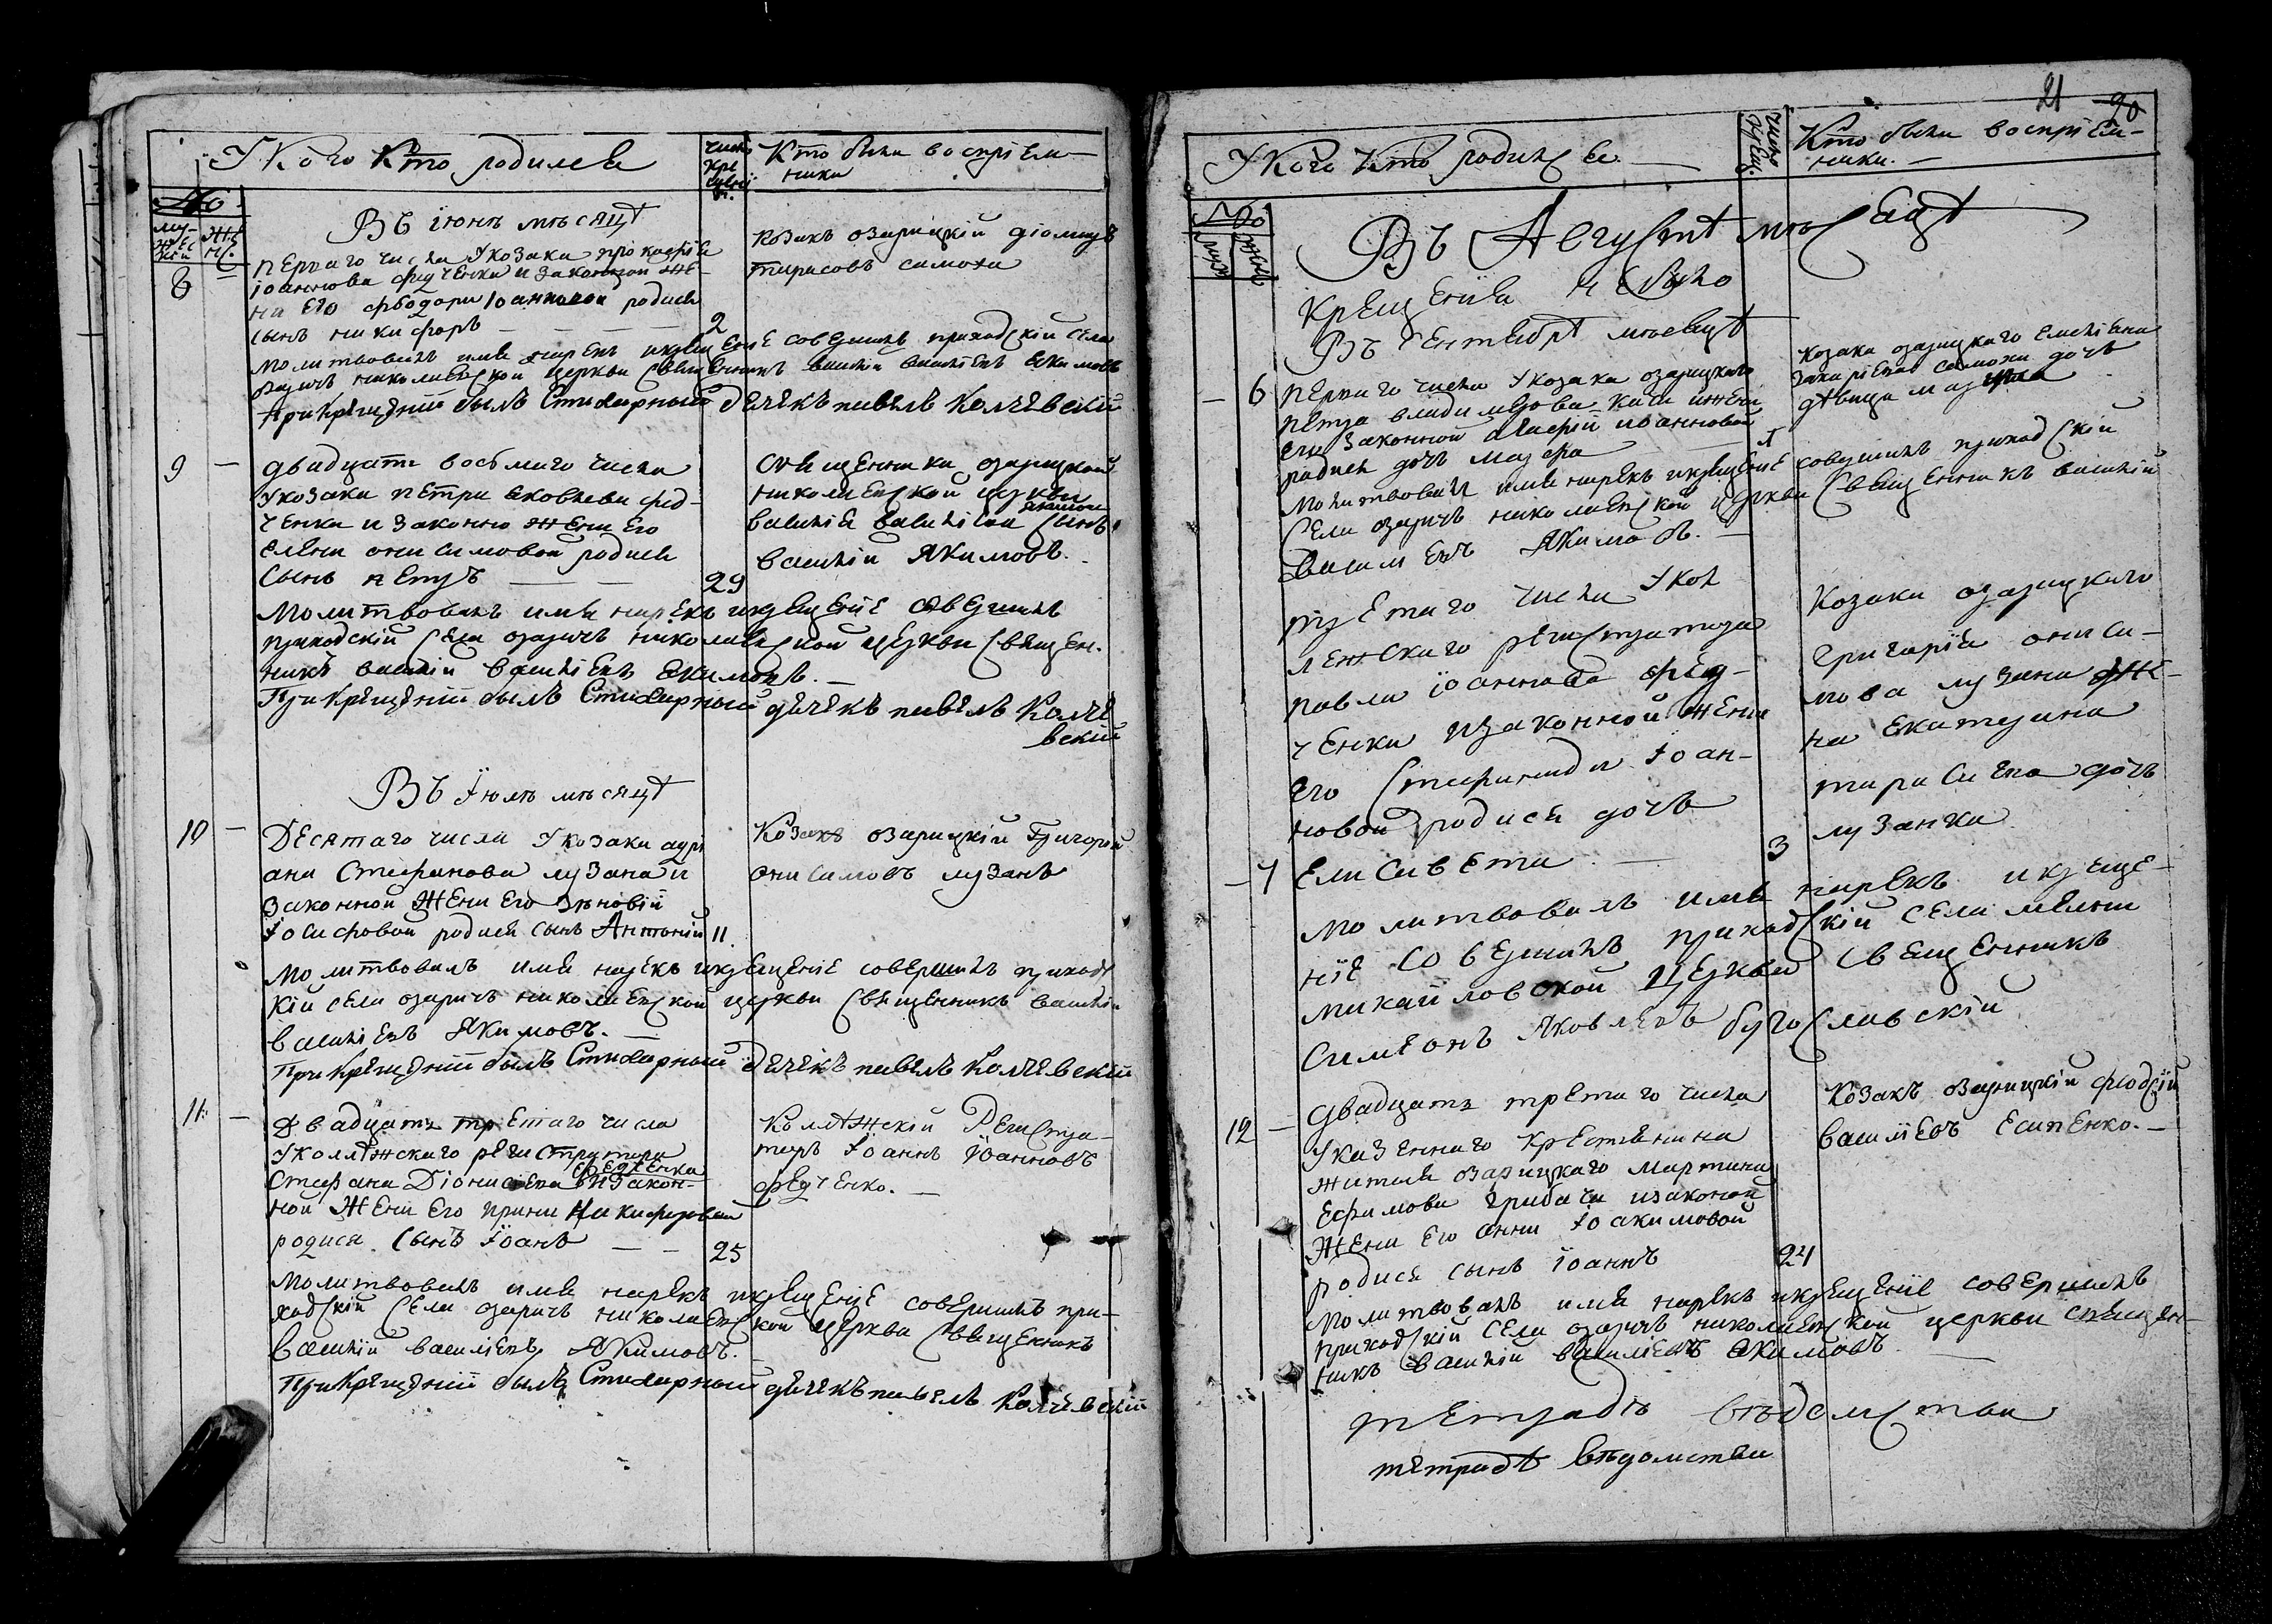 У Кого Кто родился
Число
кре
щені
я.
Кто были воспріем-
ники
№
му-
жес
кій
жѣ
н.
Въ іюнѣ мѣсяцѣ
8
Перваго числа У козака прокофія
іоаннова федченка и законной же-
ни Его феодори іоанновой родися
сынъ никифоръ
2
козакъ озарицкій діомидъ
тарасовъ самоха
Молитвовалъ имя нарекъ икрещеніе совершилъ приходскій села
озаричъ николаевской церкви священникъ василій василіевъ екимовъ
При крещеніи былъ Стихарный дячекъ павелъ Колчевскій
9
двадцать восьмаго числа
у козака петра яковлева фед-
ченка и законно жени Его
Елени онисимовой родися
сынъ петръ
29
священника озарицкой
николаевской церкви
василія василіева якимова сынъ
василій Якимовъ.
Молитвовалъ имя нарекъ икрещеніе совершилъ
приходскій села озаричъ николаевской церкви священ-
никъ василій василіевъ екимовъ.
При крещеніи былъ Стихарный дячекъ павелъ Колче
вскій
Въ Іюлѣ мѣсяцѣ
10
Десятаго числа У козака адрі
ана Стефанова лузана и
законной Жени Его Зѣновіи
Іосифовой родися сынъ Антоній
11.
Козакъ озарицкій Григорій
онисимовъ лузанъ
Молитвовалъ имя нарекъ икрещеніе совершилъ приходс
кій села озаричъ николаевской церкви священникъ василій
василіевъ Якимовъ.
При крещеніи былъ Стихарный дячекъ павелъ Колчевскій
11.
Двадцать третаго числа
У коллѣжскаго регистратора
Стефана Діонисіева федченка и Закон-
ной Жени Его ирини Никифоровой
родися сынъ Іоанъ
25
Коллѣжскій Регистра-
торъ Іоаннъ Іоанновъ
федченко.
Молитвовалъ имя нарекъ икрещеніе совершилъ при-
ходскій села озаричъ николаевской церкви священникъ
василій василіевъ Якимовъ.
При Крещеніи былъ Стихарный дячекъ павелъ Колчевскій
21 20
У Кого Кто родился
число
крещ.
Кто были воспріем-
ники.
№
муж
женс
Въ Августѣ мѣсяцѣ
крещенія не было
Въ Сентябрѣ мѣсяцѣ
6
перваго числа У козака озарицкаго
петра владимерова каси и жени
его законной іоанновой
родися дочь марфа
козака озарицкаго емеліяна
захаріева самохи дочь
дѣвица марфа
молитвовалъ имя нарекъ икрещеніе совершилъ приходскій
села озаричъ николаевской церкви священникъ василій
василіевъ Якимовъ.
третаго числа У кол
лежскаго регистратора
павла іоаннова фед-
ченка и законной жени
Его Стефаниди Іоан-
новой родися дочь
7
Елисавета
3
Козака озарицкаго
григорія ониси-
мова лузана же-
на екатерина
тарасиева дочь
лузанка
молитвовалъ имя нарекъ икреще-
ніе совершилъ приходскій села
михайловской церкви священникъ
Симеонъ Яковлевъ бугославскій
12
двадцать третаго числа
У казеннаго крестянина
жителя озарицкаго мартина
Ефимова грибача и законой
жени Его анни Іоакимовой
родися сынъ іоаннъ
24
Козакъ озарицкій феодосій
василіевъ есипенко.
Молитвовалъ имя нарекъ икрещеніе совершилъ
приходскій села озаричъ николаевской церкви священ-
никъ василій василіевъ екимовъ
тетрадь вѣдомства
тетрадѣ вѣдомства